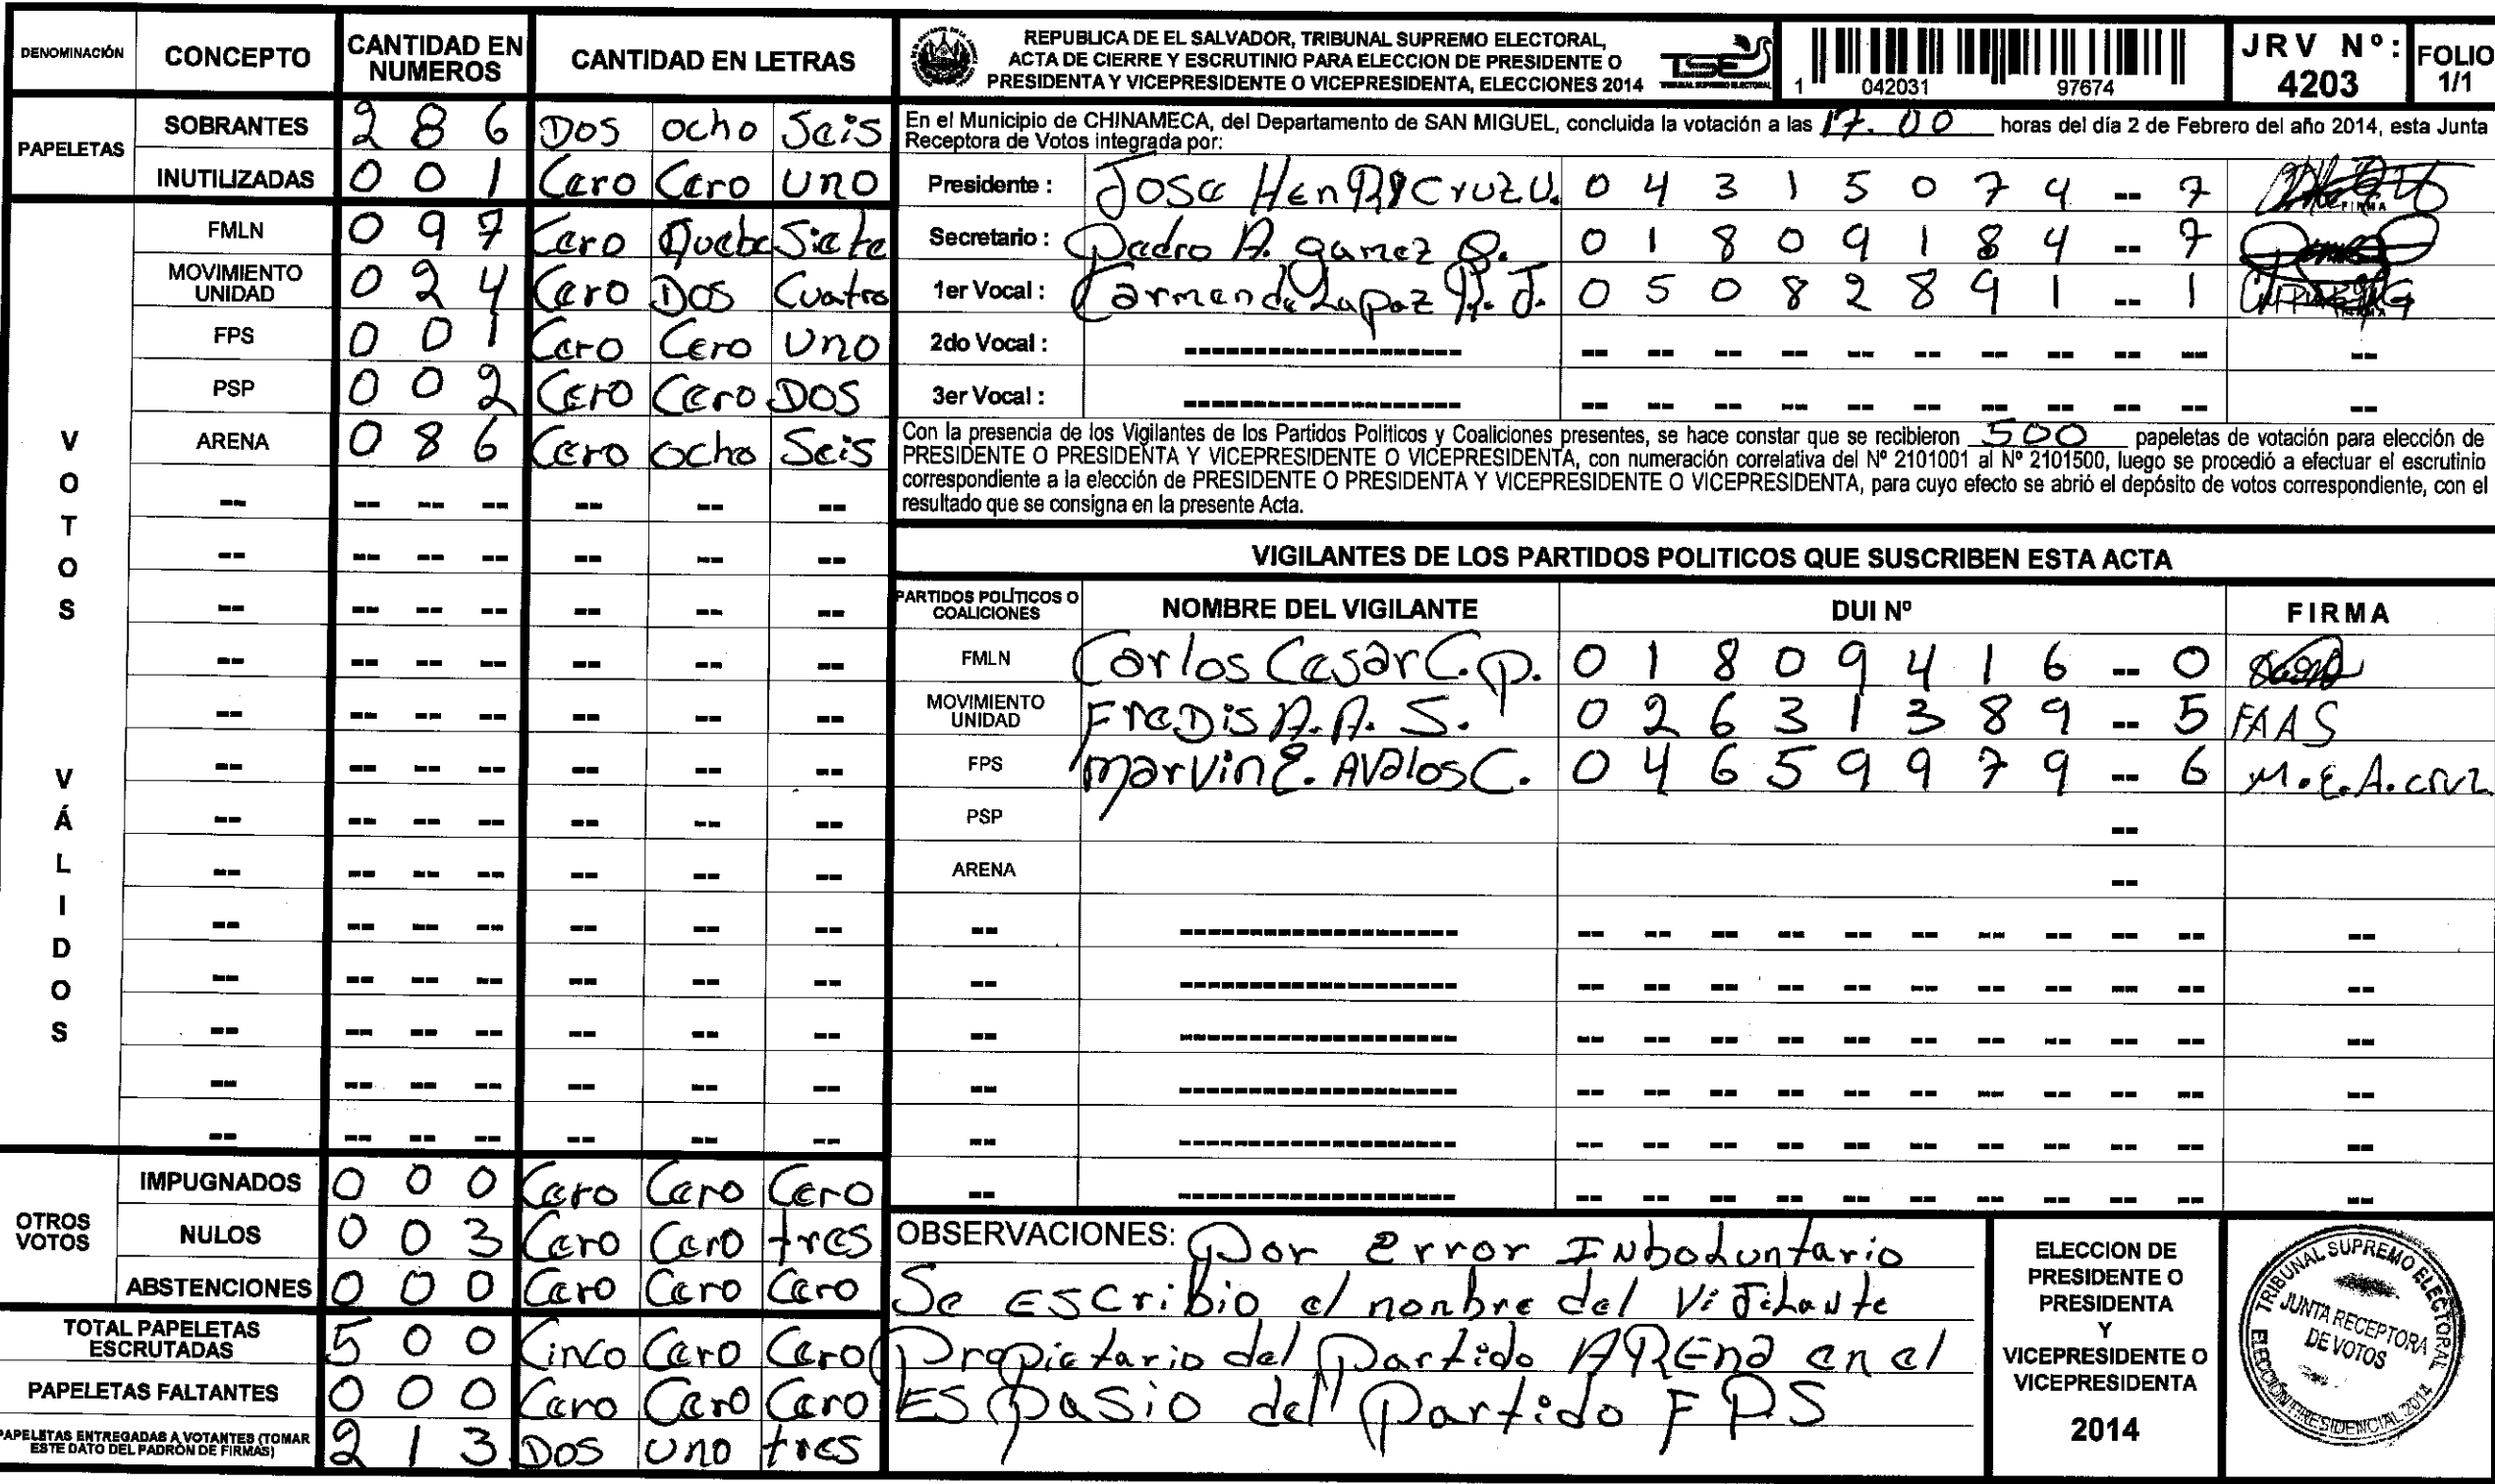 DENOMINACIÓN CONCEPTO CANTIDAD EN NUMEROS CANTIDAD EN LETRAS
PAPELETAS
SOBRANTES 2 8 6 Dos ocho Seis
INUTILIZADAS 0 0 1 Cero Cero Uno
VOTOS VÁLIDOS
FMLN 0 9 7 Cero Nuebe Siete
MOVIMIENTO UNIDAD 0 2 4 Cero Dos Cuatro
FPS 0 0 1 Cero Cero Uno
PSP 0 0 2 Cero Cero Dos
ARENA 0 8 6 Cero ocho Seis
OTROS VOTOS
IMPUGNADOS 0 0 0 Cero Cero Cero
NULOS 0 0 3 Cero Cero tres
ABSTENCIONES 0 0 0 Cero Cero Cero
TOTAL PAPELETAS ESCRUTADAS 5 0 0 Cinco Cero Cero
PAPELETAS FALTANTES 0 0 0 Cero Cero Cero
PAPELETAS ENTREGADAS A VOTANTES (TOMAR ESTE DATO DEL PADRÓN DE FIRMAS) 2 1 3 Dos Uno tres
REPUBLICA DE EL SALVADOR, TRIBUNAL SUPREMO ELECTORAL,
ACTA DE CIERRE Y ESCRUTINIO PARA ELECCION DE PRESIDENTE O
PRESIDENTA Y VICEPRESIDENTE O VICEPRESIDENTA, ELECCIONES 2014
TSE
TRIBUNAL SUPREMO ELECTORAL
1 042031 97674
JRV Nº: 4203
FOLIO 1/1
En el Municipio de CHINAMECA, del Departamento de SAN MIGUEL, concluida la votación a las 17.00 horas del día 2 de Febrero del año 2014, esta Junta
Receptora de Votos integrada por:
Presidente : Jose Cruz U. 0 4 3 1 5 0 7 4 -- 7 FIRMA
Secretario : Pedro A. gamez 0 1 8 0 9 1 8 4 -- 7
1er Vocal : Carmen de La paz 0 5 0 8 2 8 9 1 -- 1
2do Vocal :
3er Vocal :
Con la presencia de los Vigilantes de los Partidos Politicos y Coaliciones presentes, se hace constar que se recibieron 500 papeletas de votación para elección de
PRESIDENTE O PRESIDENTA Y VICEPRESIDENTE O VICEPRESIDENTA, con numeración correlativa del Nº 2101001 al Nº 2101500, luego se procedió a efectuar el escrutinio
correspondiente a la elección de PRESIDENTE O PRESIDENTA Y VICEPRESIDENTE O VICEPRESIDENTA, para cuyo efecto se abrió el depósito de votos correspondiente, con el
resultado que se consigna en la presente Acta.
VIGILANTES DE LOS PARTIDOS POLITICOS QUE SUSCRIBEN ESTA ACTA
PARTIDOS POLÍTICOS O COALICIONES NOMBRE DEL VIGILANTE DUI Nº FIRMA
FMLN Carlos Cesar C. P. 0 1 8 0 9 4 1 6 -- 0
MOVIMIENTO UNIDAD Fredis A. A. S. 0 2 6 3 1 3 8 9 -- 5 FAAS
FPS Marvin E. Avalos C. 0 4 6 5 9 9 7 9 -- 6 M.E.A.cruz
PSP --
ARENA --
OBSERVACIONES: Por Error Inboluntario
Se Escribio el nonbre del Vijilante
Propietario del Partido ARENA en el
Espasio del Partido FPS
ELECCION DE
PRESIDENTE O
PRESIDENTA
Y
VICEPRESIDENTE O
VICEPRESIDENTA
2014
TRIBUNAL SUPREMO ELECTORAL
JUNTA RECEPTORA
DE VOTOS
ELECCIÓN PRESIDENCIAL 2014